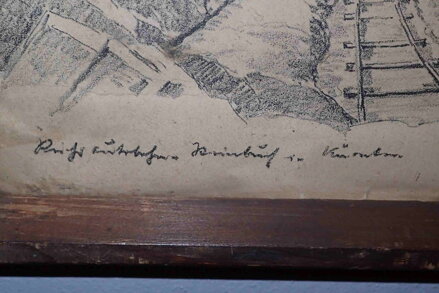 Reichsautobahn Steinbruch in Kärnten